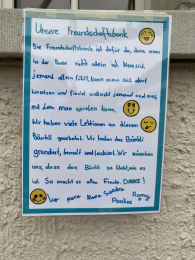 Unsere Freundschaftsbank
Die Freundschaftsbank ist dafür da, dass man
in der Pause nicht allein ist. Wenn sich
jemand allein fühlt, kann man sich dort
hinsetzen und findet vielleicht jemand und eine,
mit dem man spielen kann.
Wir haben viele Lektionen an diesem
Bänkli gearbeitet. Wir haben das Bänkli
grundiert, bemalt und lackiert. Wir wünschen
uns, dass das Bänkli so bleibt, wie es
ist. So macht es allen Freude. DANKE!
Sandra Romy
Pauline